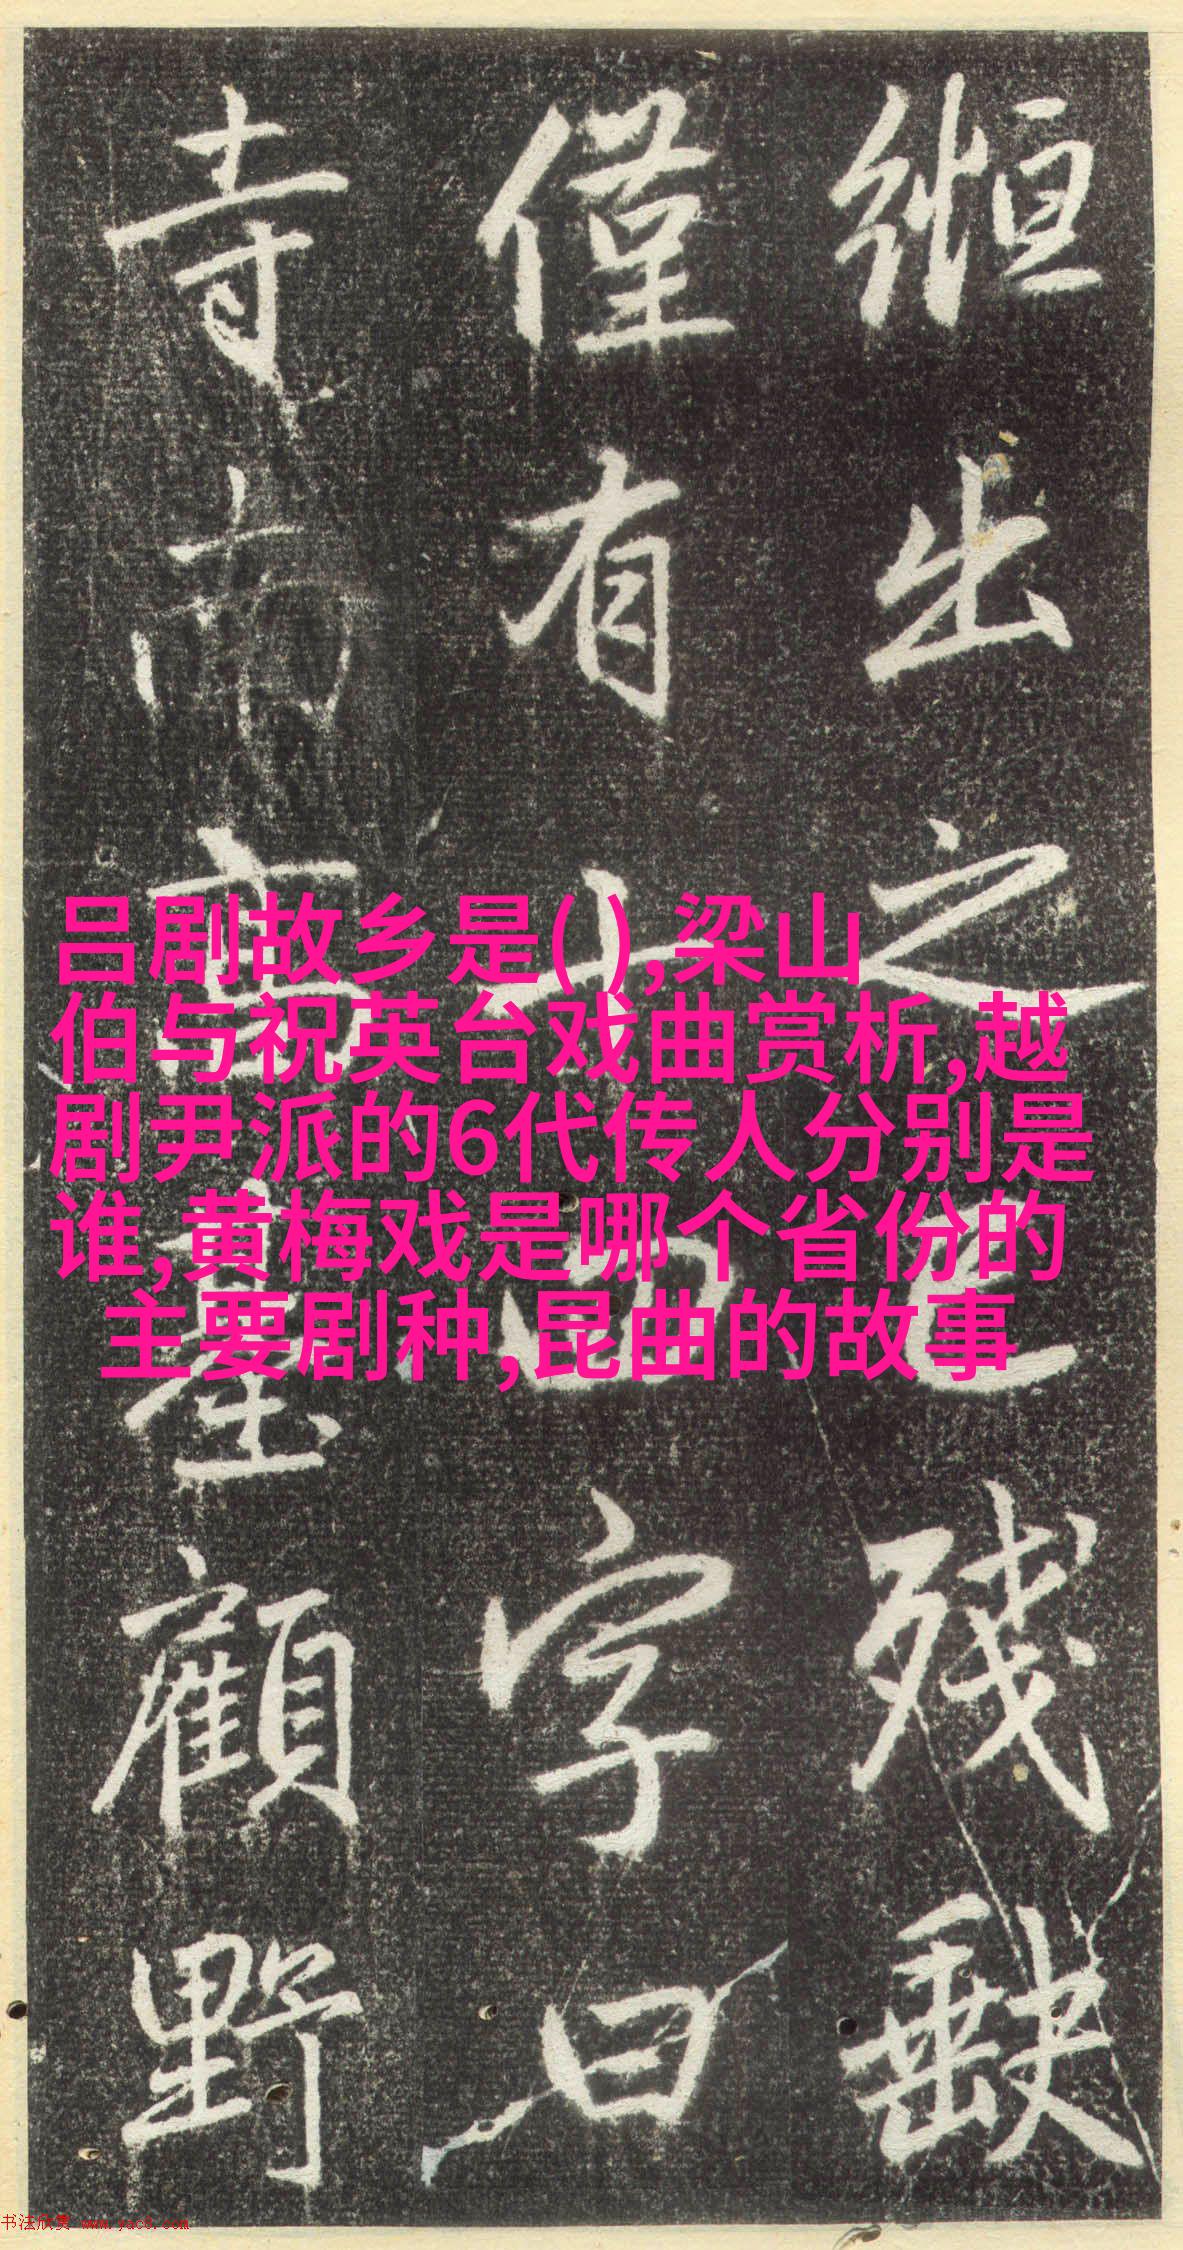 出之殘缺
僅有上字曰
寺而臺顧野
吕剧故乡是( ),梁山
伯与祝英台戏曲赏析,越
剧尹派的6代传人分别是
谁,黄梅戏是哪个省份的
主要剧种,昆曲的故事
书法欣赏 www.yac8.com